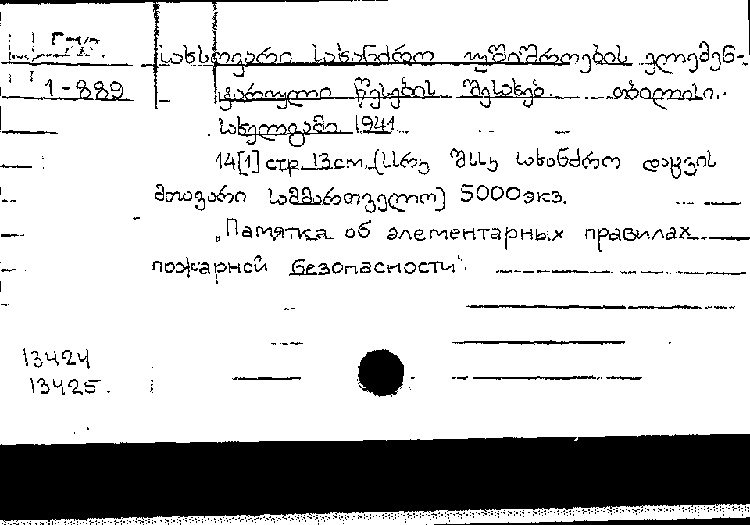 სახსოვარი სახანძრო უშიშროების ელემენ-
1-889 ტარული წესების შესახებ. თბილისი.
სახელგამი 1941
14[1] стр. 13см. (სსრკ შსსკ სახანძრო დაცვის
მთავარი სამმართველო) 5000 экз.
„Памятка об элементарных правилах
пожарной безопасности“.
13424
13425.